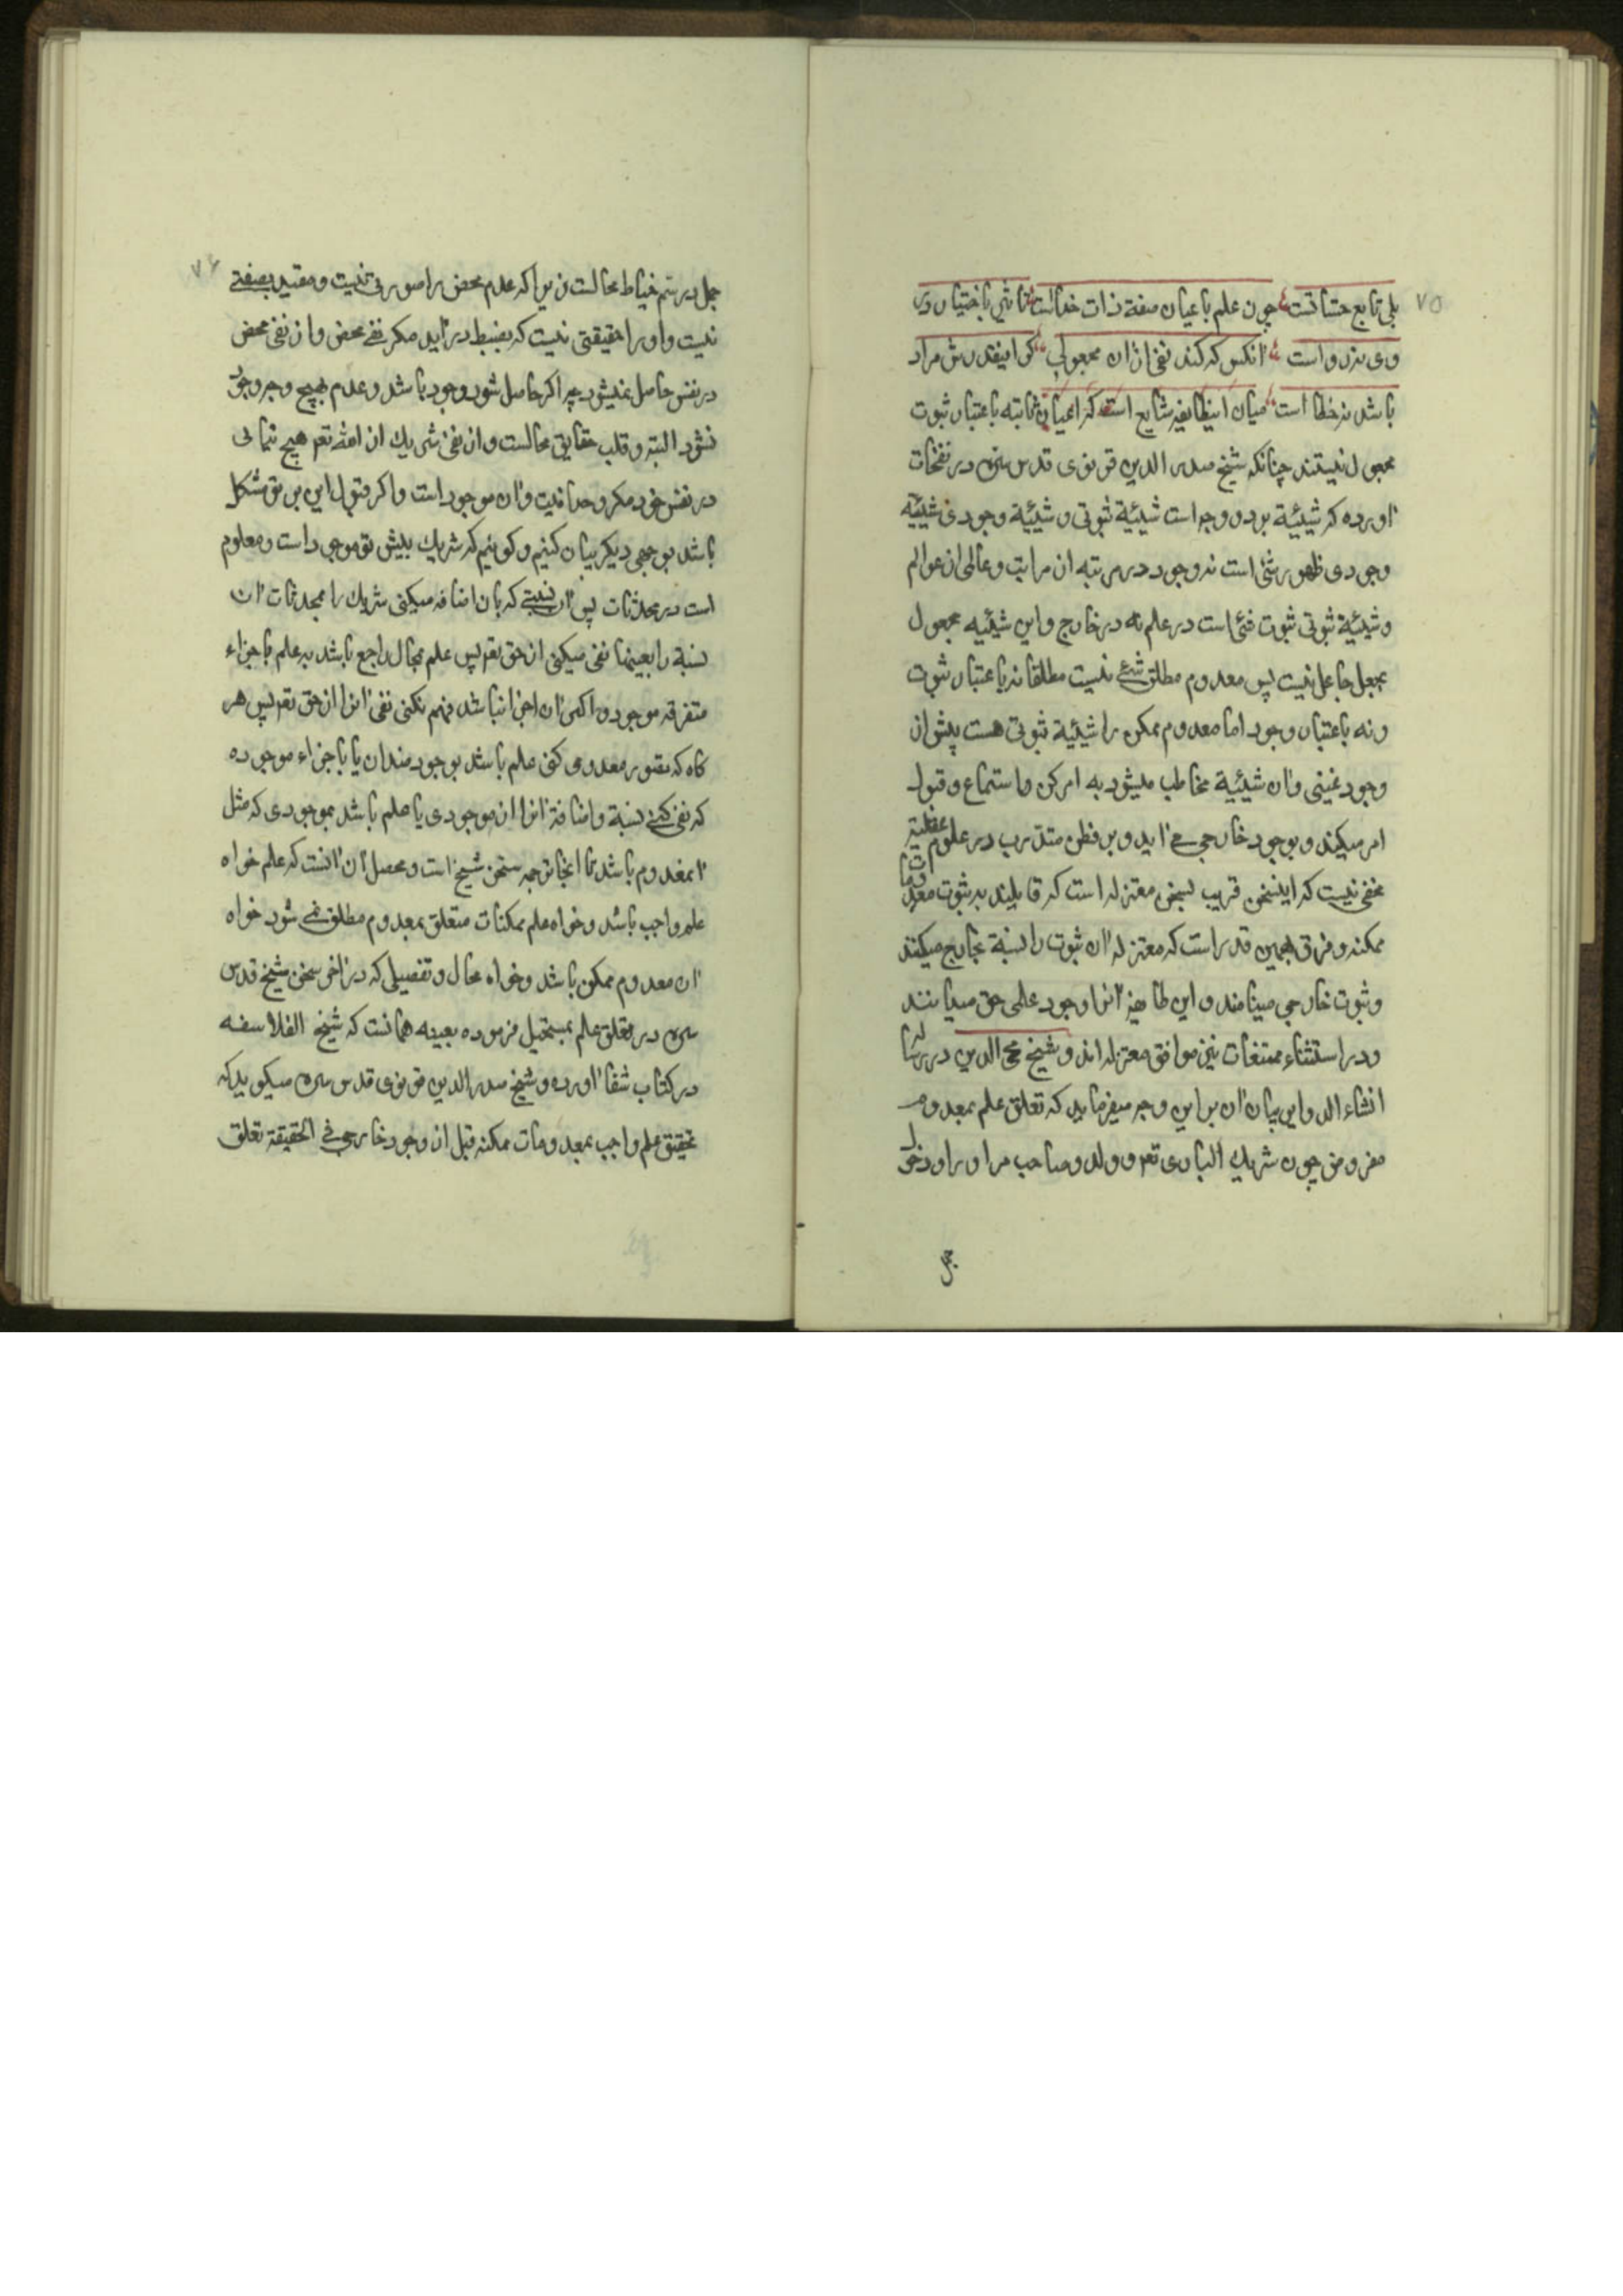 ۷۵
بلی تابع حسانست چون علم باعیان صفة ذات خداست تاثیر باختیار در
وی نه رواست آنکس که کند نفی ازان مجعولی کر اینقدرش مراد
باشد نه خطا است میان اینطایفه شایع است که اعیان ثابته باعتبار ثبوت
مجعول نیستند چنانکه شیخ صدر الدین قونوی قدس سره در نفحات
آورده که شیئیة بر دو وجه است شیئیة ثبوتی و شیئیة وجودی شیئیة
وجودی ظهور شئ است نه وجود در مرتبه از مراتب و عالمی از عوالم
و شیئیة ثبوتی ثبوت شئ است در علم نه در خارج و این شیئیه مجعول
بجعل جاعل نیست پس معدوم مطلق شئ نیست مطلقا نه باعتبار ثبوت
و نه باعتبار وجود اما معدوم ممکن را شیئیة ثبوتی هست پیش از
وجود عینی و آن شیئیة مخاطب میشود به امر کن و استماع و قبول
امر میکند و بوجود خارجی مے آید و بر فطن متدرب در علوم عقلیة
مخفی نیست که اینسخن قریب بسخن معتزله است که قایلند به ثبوت معدومات
ممکنه و فرق همین قدر است که معتزله آن ثبوت را نسبة بخارج میکنند
و ثبوت خارجی مینامند و این طایفه آنرا وجود علمی حق میدانند
و در استثناء ممتنعات نیز موافق معتزله اند و شیخ محی الدین در رساله
انشاء الدوایر بیان آن بر این وجه میفرماید که تعلق علم بمعدوم
مفروض چون شریك الباری تعم و ولد و صاحب مر او را و دخول
جمل
۷۶
جمل در سم خیاط محالست زیرا که عدم محض را صورتی نیست و مقید بصفتے
نیست و او را حقیقتی نیست که بضبط در آید مکر نفے محض و از نفی محض
در نفس حاصل نمیشود چه اکر حاصل شود وجود باشد و عدم بهیچ وجه وجود
نشود البته و قلب حقایق محالست و از نفی شریك از الله تعم هیچ نیابی
در نفس خود مکر وحدانیت و آن موجود است و اکر قبول این بر تو مشکل
باشد بوجهی دیکر بیان کنیم و کوئیم که شریك پیش تو موجود است و معلوم
است در محدثات پس آن نسبتے که بان اضافه میکنی شریك را بمحدثات آن
نسبة را بعینها نفی میکنی از حق تعم پس علم بمحال راجع باشد به علم باجزاء
متفرقه موجوده و اکر آن اجزا نباشد فهم نکنی نفی آنرا از حق تعم پس هر
کاه که تصور معدومی کنی علم باشد بوجود ضد آن یا باجزاء موجوده
که نفی کنے نسبة و اضافة آنرا از موجودی یا علم باشد بموجودی که مثل
آنمعدوم باشد تا اینجا ترجمه سخن شیخ است و محصل آن آنست که علم خواه
علم واجب باشد و خواه علم ممکنات متعلق بمعدوم مطلق نمے شود خواه
آن معدوم ممکن باشد و خواه محال و تفصیلی که در آخر سخن شیخ قدس
سره در تعلق علم بمستحیل فرموده بعینه همانست که شیخ الفلاسفه
در کتاب شفا آورده و شیخ صدر الدین قونوی قدس سره میکوید که
تحقیق علم واجب بمعدومات ممکنه قبل از وجود خارجی فے الحقیقة تعلق